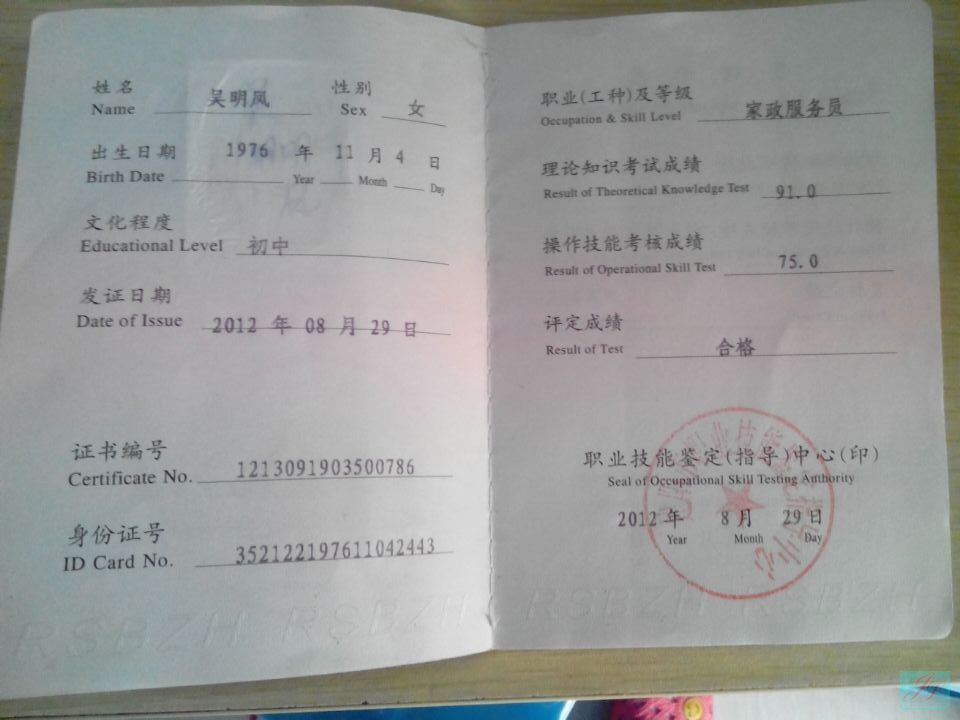 姓名 吴明凤 性别 女
Name Sex
出生日期 1976 年 11 月 4 日
Birth Date Year Month Day
文化程度
Educational Level 初中
发证日期
Date of Issue 2012 年 08 月 29 日
证书编号
Certificate No. 1213091903500786
身份证号
ID Card No. 352122197611042443
RSBZH RSBZH
职业(工种)及等级 家政服务员
Occupation & Skill Level
理论知识考试成绩
Result of Theoretical Knowledge Test 91.0
操作技能考核成绩
Result of Operational Skill Test 75.0
评定成绩
Result of Test 合格
职业技能鉴定(指导)中心(印)
Seal of Occupational Skill Testing Authority
2012 年 8 月 29 日
Year Month Day
RSBZH RSBZH